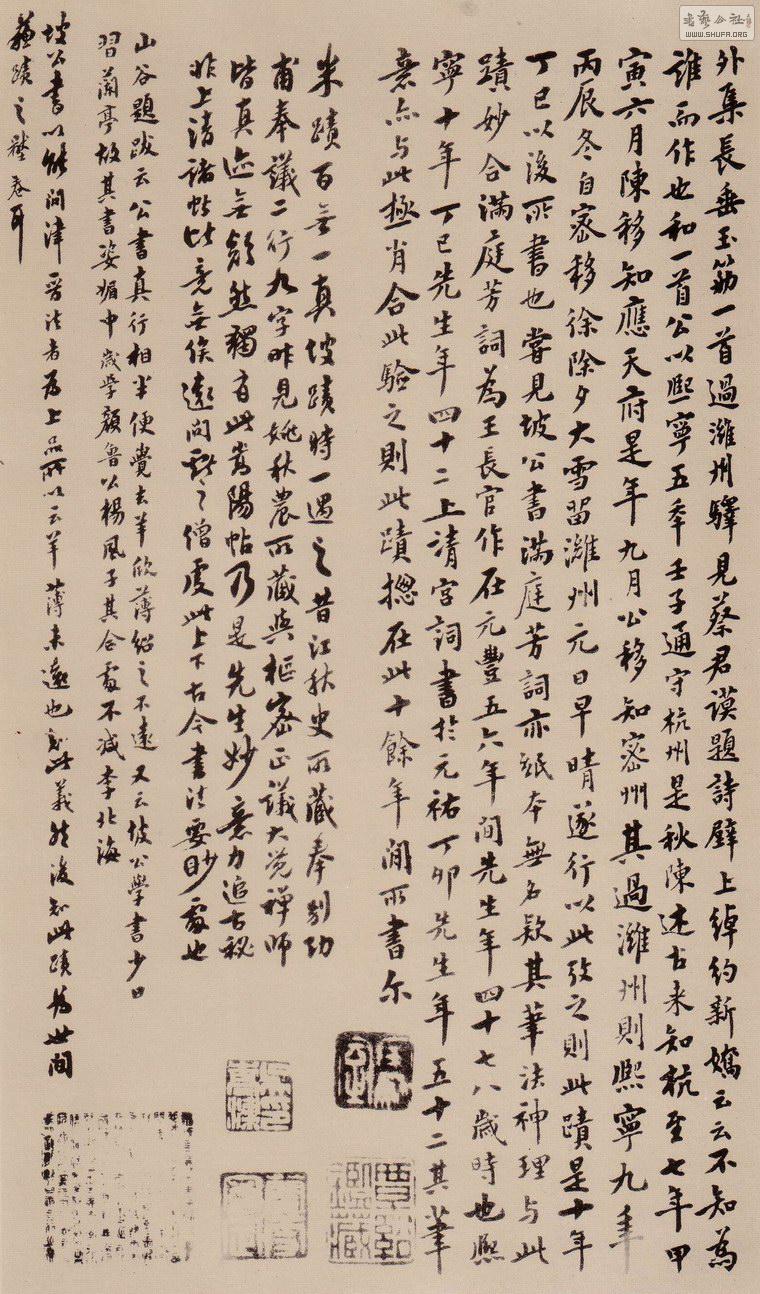 外集長垂玉筯一首過濰州驛見蔡君謨題詩壁上綽約新嬌云云不知為
誰而作也和一首公以熙寧五年壬子通守杭州是秋陳述古來知杭至七年甲
寅六月陳移知應天府是年九月公移知密州其過濰州則熙寧九年
丙辰冬自密移徐除夕大雪留濰州元日早晴遂行以此攷之則此蹟是十年
丁巳以後所書也嘗見坡公書滿庭芳詞亦紙本無名欵其筆法神理与此
蹟妙合滿庭芳詞為王長官作在元豐五六年間先生年四十七八歲時也熙
寧十年丁巳先生年四十二上清宮詞書於元祐丁卯先生年五十二其筆
意亦与此極肖合此驗之則此蹟摠在此十餘年間所書尔
米蹟百無一真坡蹟時一遇之昔江秋史所藏奉別功
甫奉議二行九字昨見姚秋農所藏與樞密正議大覺禪師
皆真迹無疑然獨有此嵩陽帖乃是先生妙意力追古秘
非上清諸帖比竟無俟遠問 之僧虔此上下古今書法要眇處也
山谷題跋云公書真行相半便覺去羊欣薄紹之不遠又云坡公學書少日
習蘭亭故其書姿媚中歲學顏魯公楊風子其合處不減李北海
坡公書以能問津晉法者為上品所以云羊薄未遠也 此義然後知此蹟為世間
蘇蹟之 卷耳
書藝公社
WWW.SHUFA.ORG